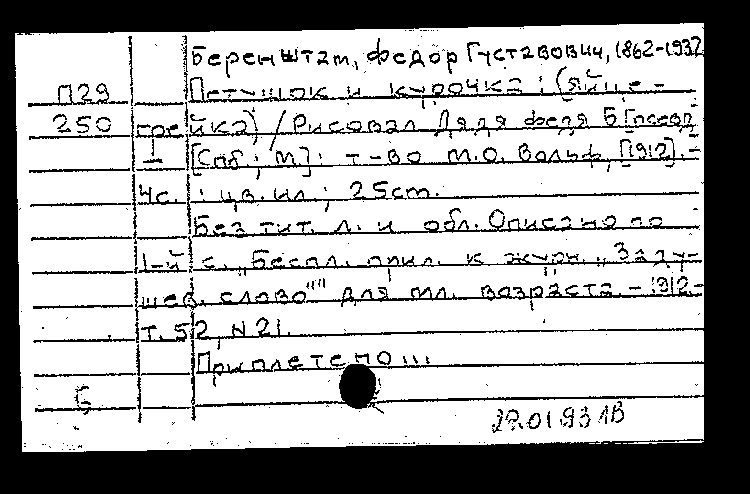 Беренштам, Федор Густавович, 1862-1937
П29 Петушок и курочка : (Яйце-
250 грейка) / Рисовал Дядя Федя Б [псевд
[Спб ; М.] : т-во М.О. Вольф, [1912]. -
4с. : цв. ил. ; 25cm.
Без тит. л. и обл. Описано по
1-й с. „Беспл. прил. к журн. „Заду-
шев. слово"" для мл. возраста. - 1912-
т. 52, N 21.
Приплетено...
Б
22.01.93 1В